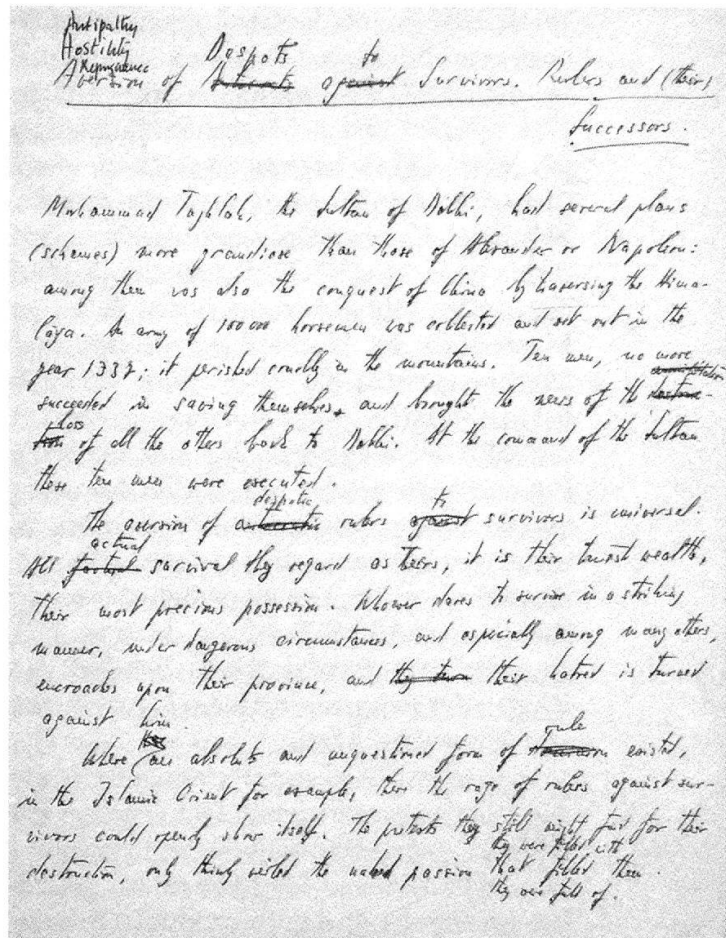 Antipathy
Hostility
Repugnance Despots to
Aversion of against Survivors. Rulers and (their)
Successors.
Mohammad Taghlak, the Sultan of Delhi, had several plans
(schemes) more grandiose than those of Alexander or Napoleon:
among them was also the conquest of China by traversing the Hima-
laya. An army of 100000 horsemen was collected and set out in the
year 1337; it perished cruelly in the mountains. Ten men, no more
succeeded in saving themselves, and brought the news of the
loss
of all the others back to Delhi. At the command of the Sultan
these ten men were executed.
despotic to
The aversion of rulers against survivors is universal.
actual
All survival they regard as theirs, it is their truest wealth,
their most precious possession. Whoever dares to survive in a striking
manner, under dangerous circumstances, and especially among many others,
encroaches upon their province, and they turn their hatred is turned
against him.
rule
Where an absolute and unquestioned form of existed,
in the Islamic Orient for example, there the rage of rulers against sur-
vivors could openly show itself. The pretexts they still might find for their
they were filled with
destruction, only thinly veiled the naked passion that filled them.
they were full of.